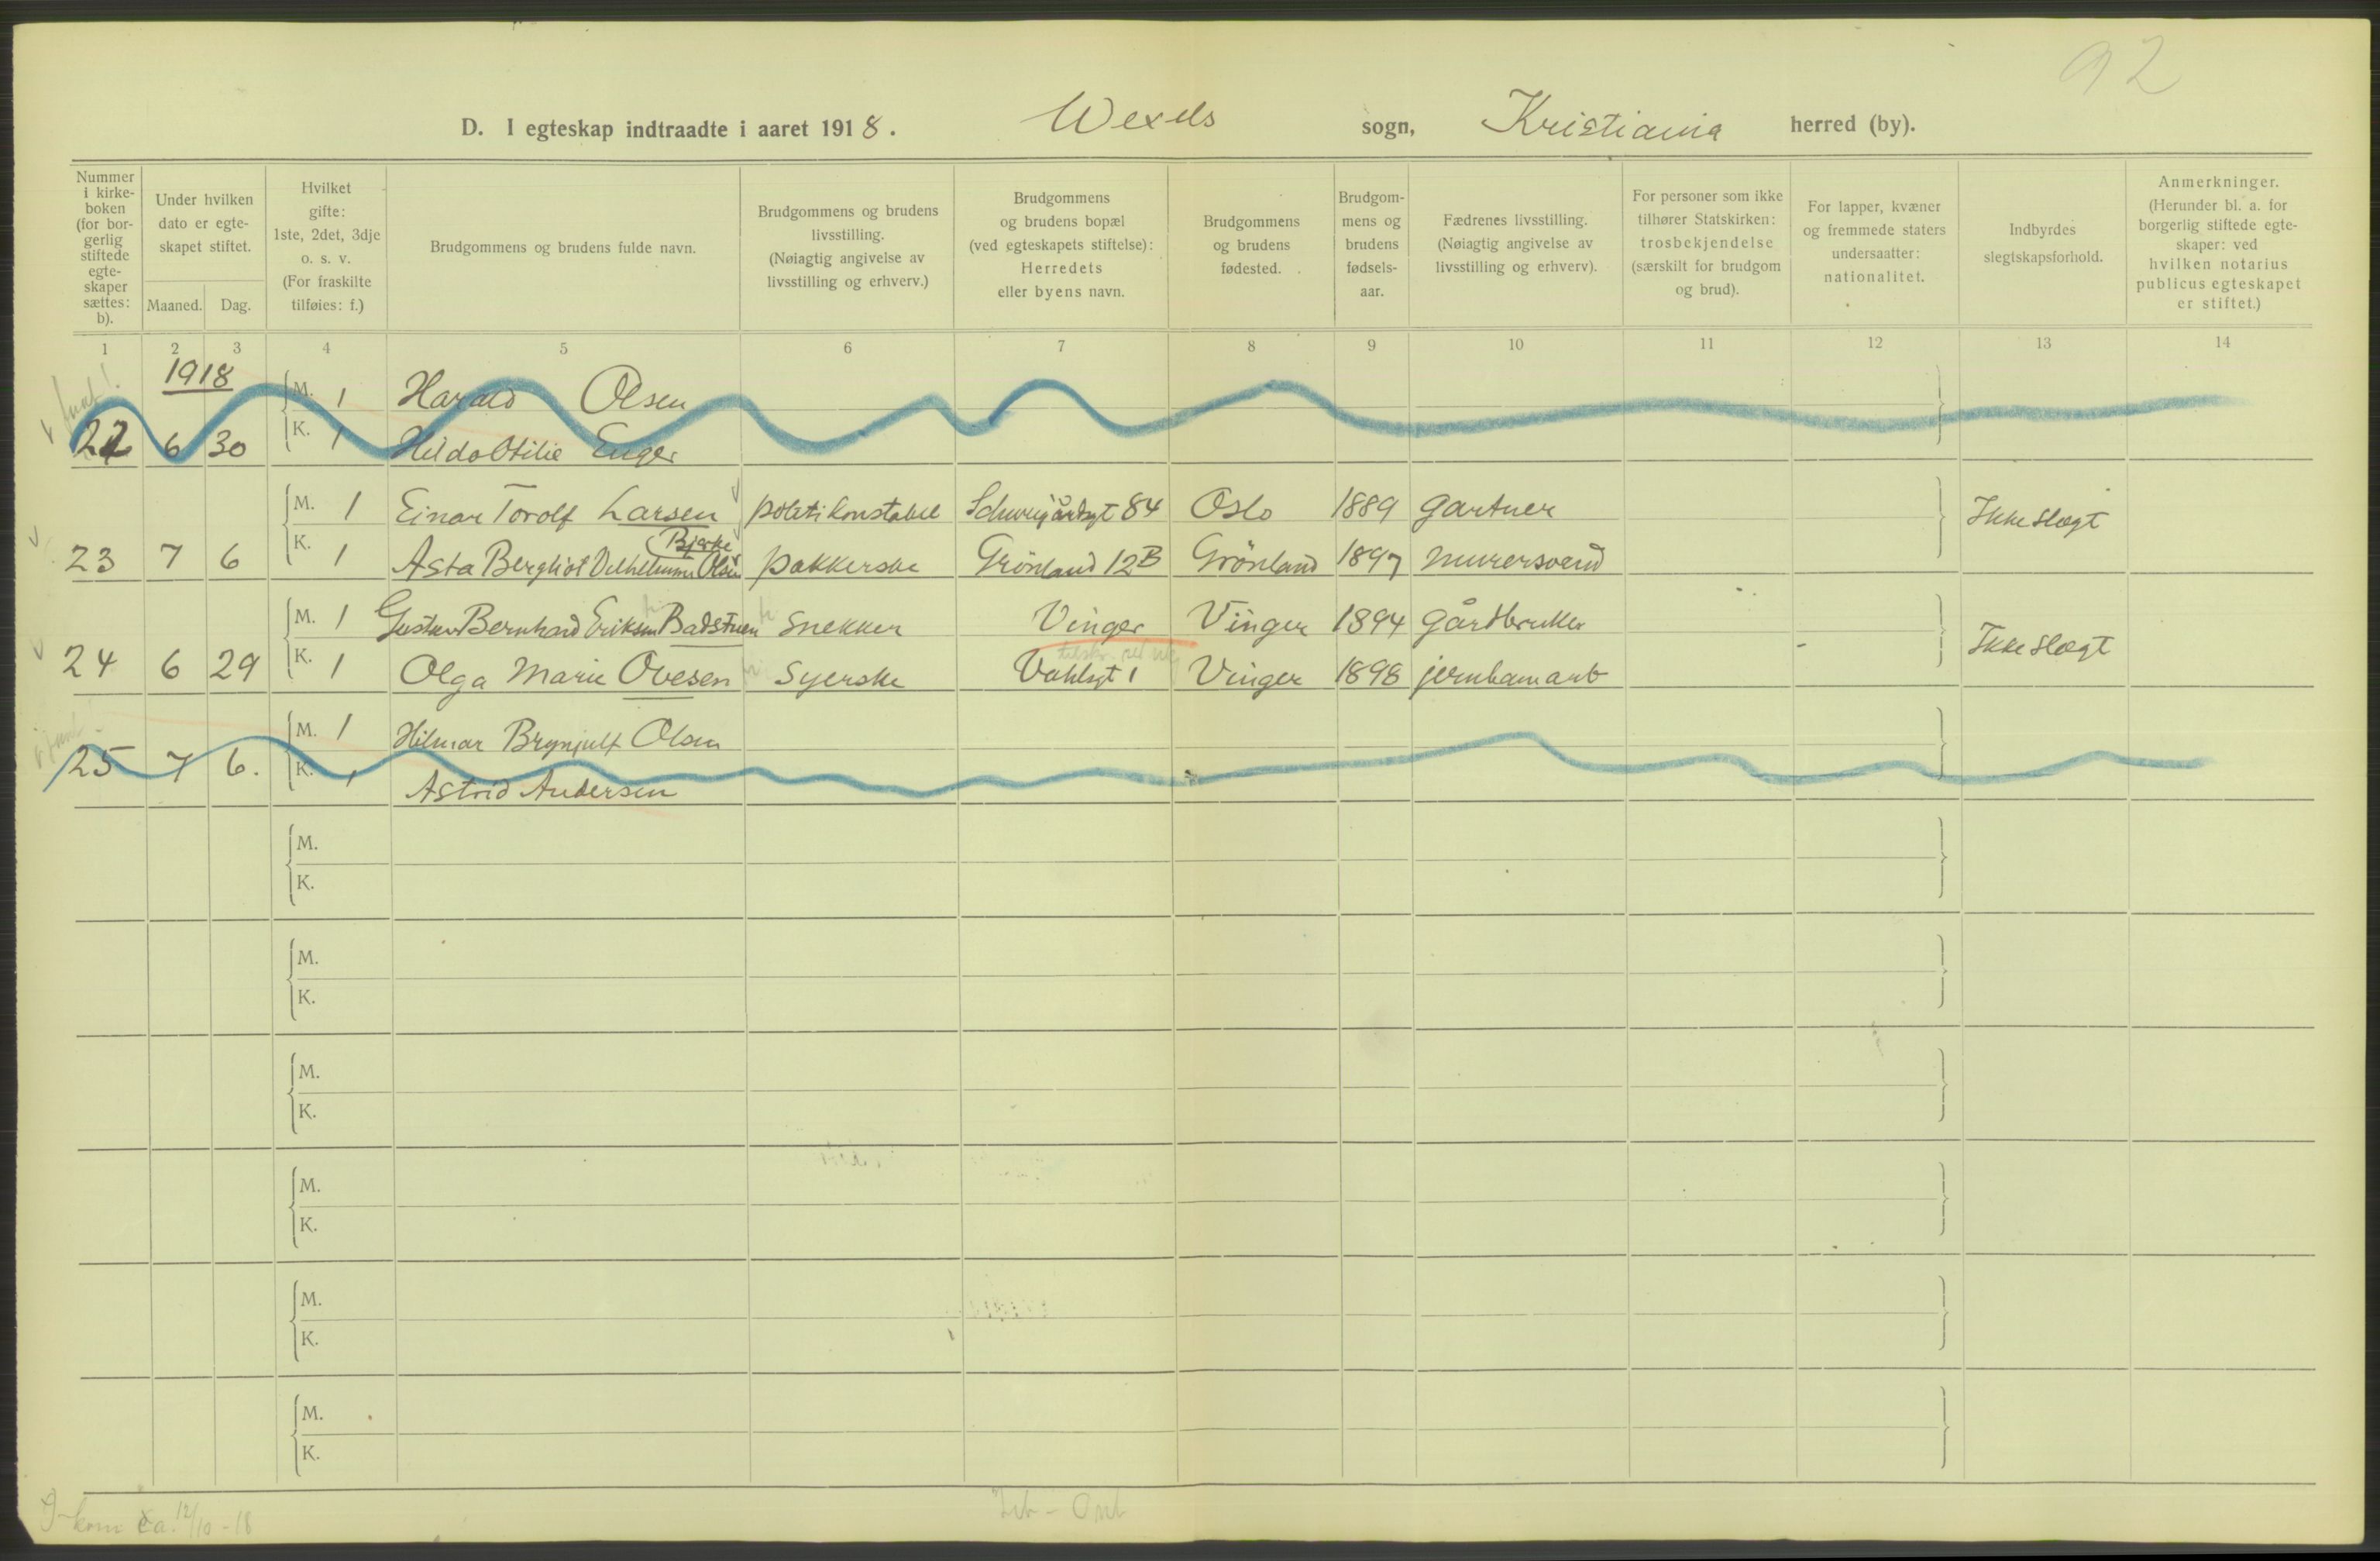 92
D. I egteskap indtraadte i aaret 1918. Wexels sogn, Kristiania herred (by).
Nummer i kirke-boken (for bor-gerlig stiftede egte-skaper sættes: b).
Under hvilken dato er egte-skapet stiftet.
Maaned. Dag.
Hvilket gifte: 1ste, 2det, 3dje o. s. v. (For fraskilte tilføies: f.)
Brudgommens og brudens fulde navn.
Brudgommens og brudens livsstilling. (Nøiagtig angivelse av livsstilling og erhverv.)
Brudgommens og brudens bopæl (ved egteskapets stiftelse): Herredets eller byens navn.
Brudgommens og brudens fødested.
Brudgom-mens og brudens fødsels-aar.
Fædrenes livsstilling. (Nøiagtig angivelse av livsstilling og erhverv).
For personer som ikke tilhører Statskirken: trosbekjendelse (særskilt for brudgom og brud).
For lapper, kvæner og fremmede staters undersaatter: nationalitet.
Indbyrdes slegtskapsforhold.
Anmerkninger. (Herunder bl. a. for borgerlig stiftede egte-skaper: ved hvilken notarius publicus egteskapet er stiftet.)
1 2 3 4 5 6 7 8 9 10 11 12 13 14
1918
M. 1 Harald Olsen
22 6 30 K. 1 Hilda Otilie Enger
M. 1 Einar Torolf Larsen politikonstabel Schweigårdsgt 84 Oslo 1889 gartner Ikke slægt
Bjerke
23 7 6 K. 1 Asta Bergliot Vilhelmine Olsen pakkerske Grönland 12B Grönland 1897 murersvend
M. 1 Gustav Bernhard Eriksen Badstuen snekker Vinger Vinger 1894 gårdbruker Ikke slægt
24 6 29 K. 1 Olga Marie Ovesen syerske Vahlsgt 1 Vinger 1898 jernbanearb
M. 1 Hilmar Brynjulf Olsen
25 7 6. K. 1 Astrid Andersen
M.
K.
M.
K.
M.
K.
M.
K.
M.
K.
M.
K.
kom ca. 12/10-18